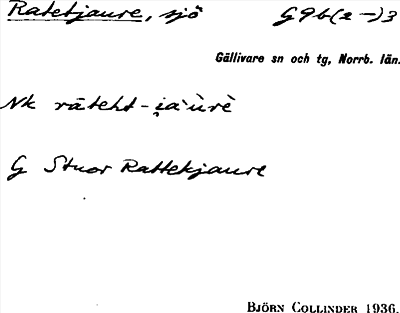 Ratekjaure, sjö G9b(2-)3
Gällivare sn och tg, Norrb. län.
Nk rāteht-i̯a`ùrè
G Stuor Rattekjaure
BJÖRN COLLINDER 1936.